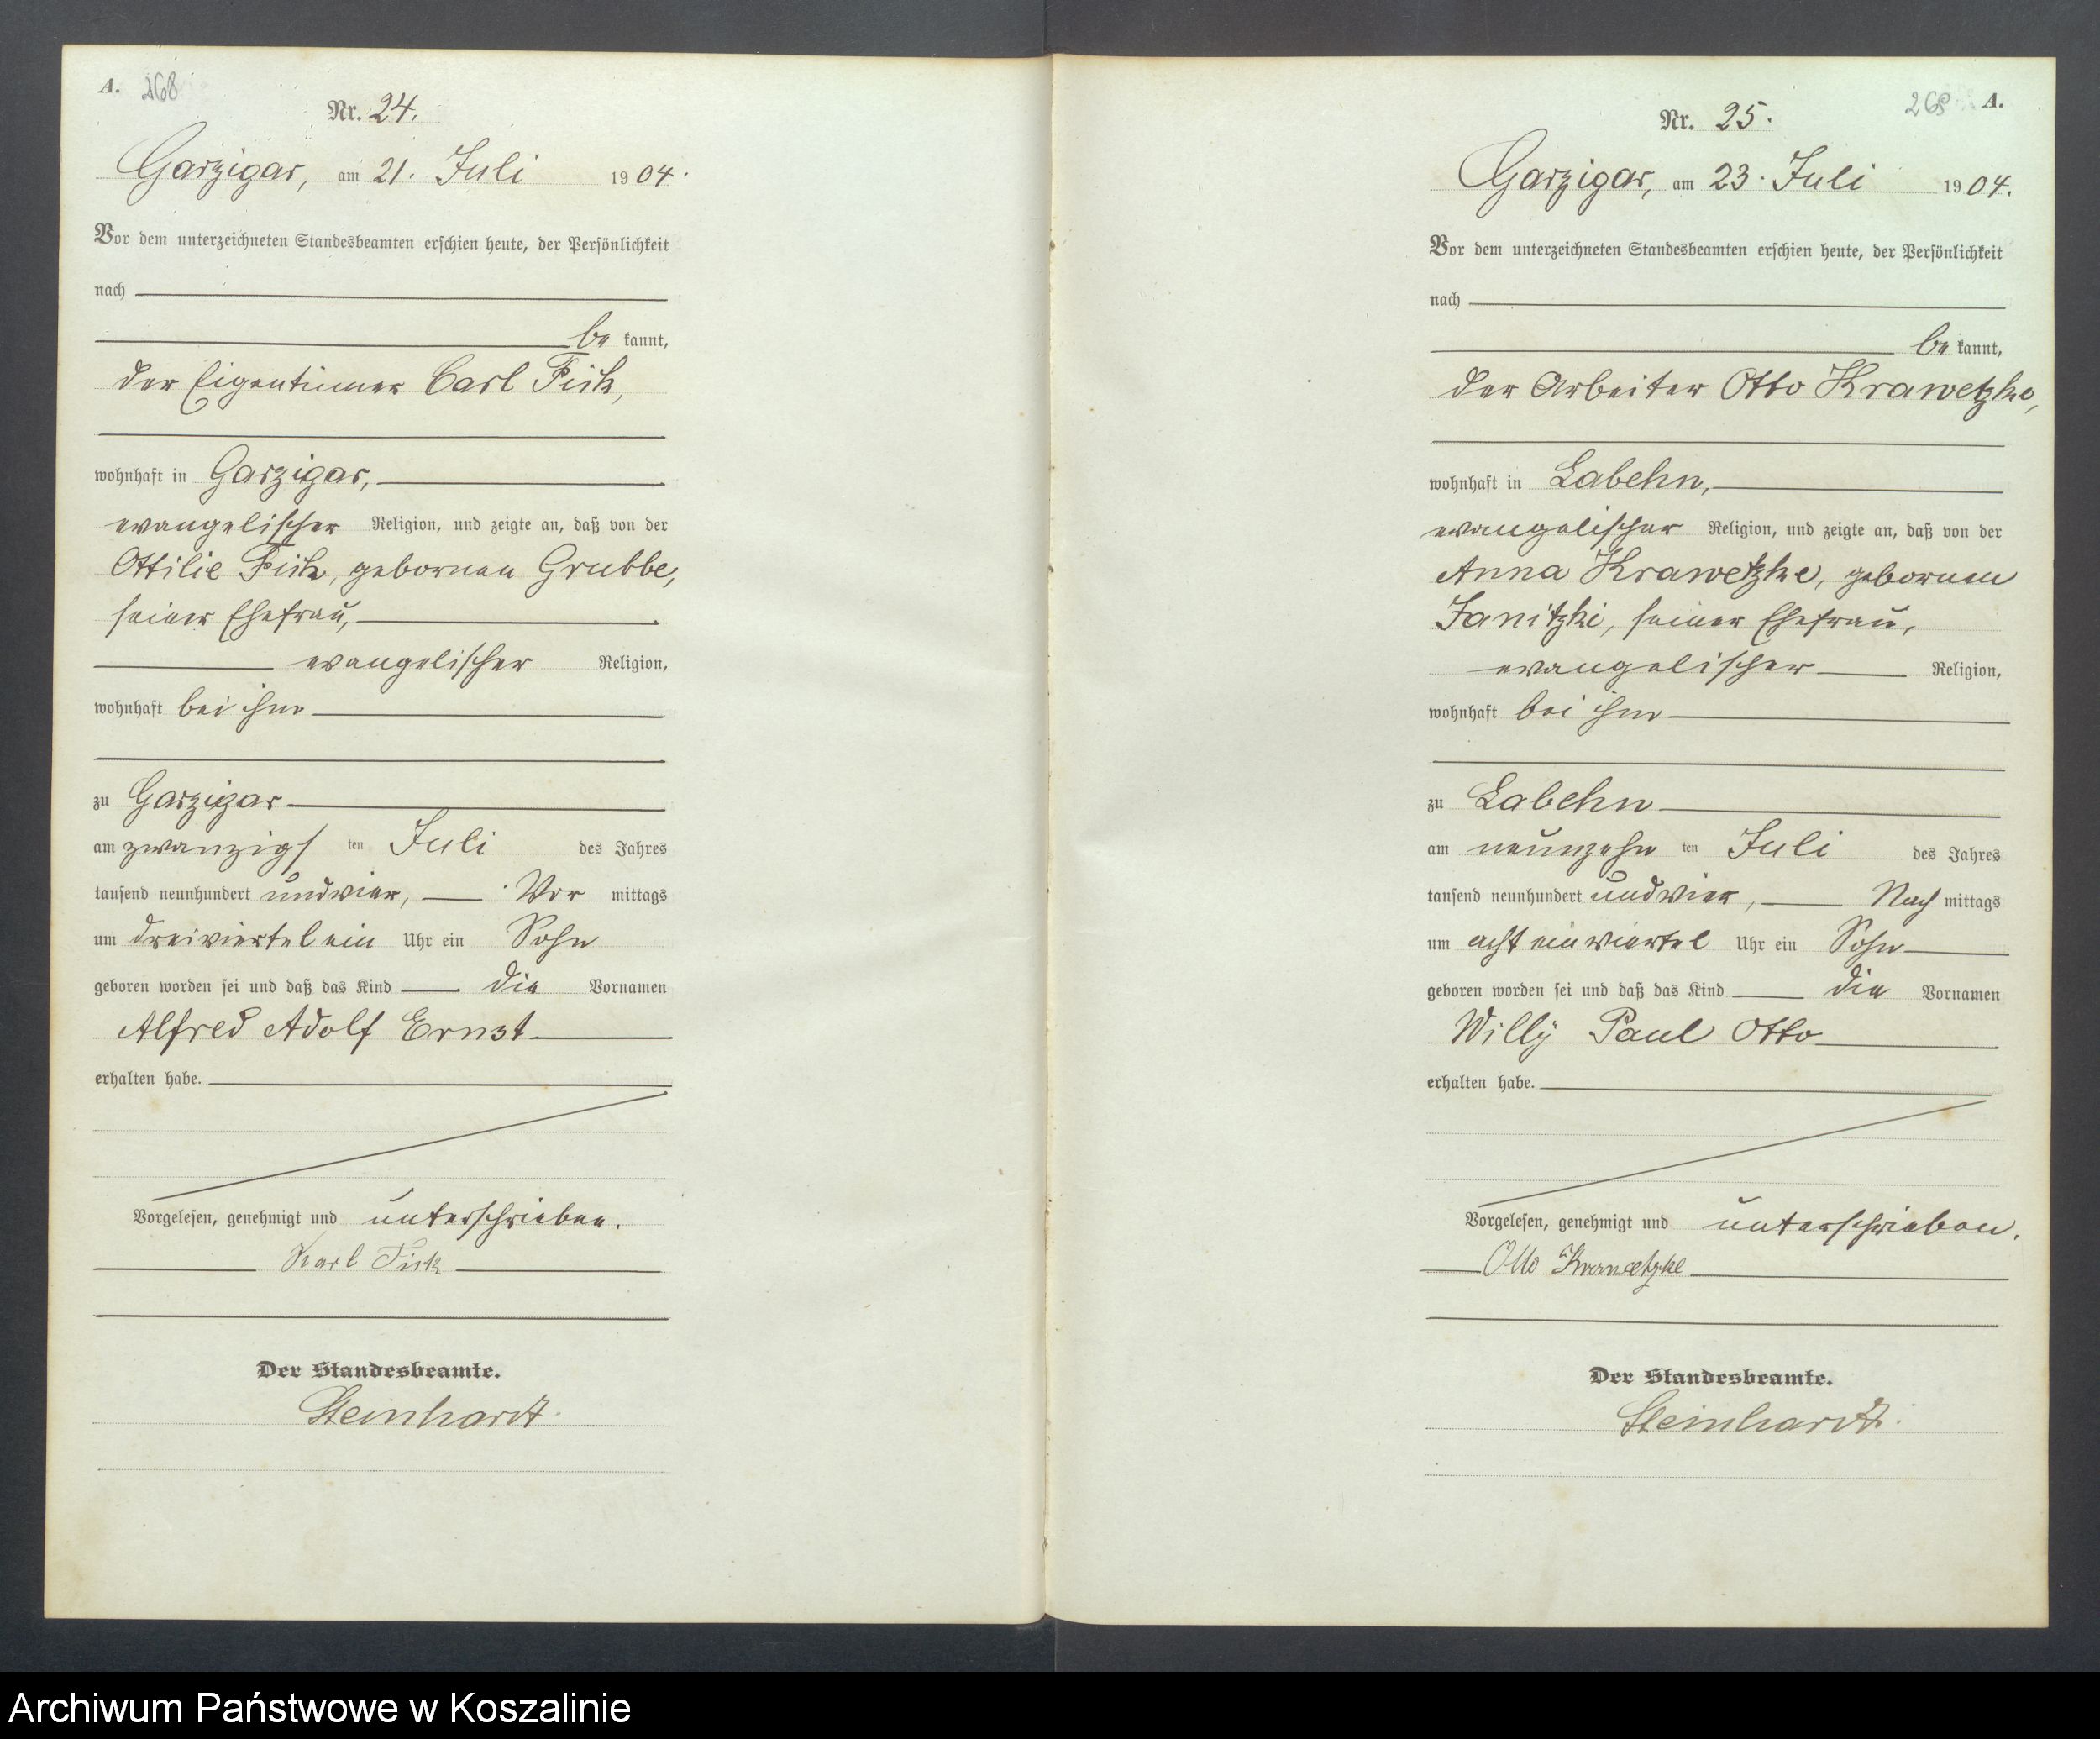 A. 268
Nr. 24.
Garzigar, am 21. Juli 1904.
Vor dem unterzeichneten Standesbeamten erschien heute, der Persönlichkeit
nach
be kannt,
der Eigentümer Carl Fick,
wohnhaft in Garzigar,
evangelischer Religion, und zeigte an, daß von der
Ottilie Fick, gebornen Grubbe,
seiner Ehefrau,
evangelischer Religion,
wohnhaft bei ihm
zu Garzigar
am zwanzigs ten Juli des Jahres
tausend neunhundert undvier, Vor mittags
um dreiviertel ein Uhr ein Sohn
geboren worden sei und daß das Kind die Vornamen
Alfred Adolf Ernst
erhalten habe.
Vorgelesen, genehmigt und unterschrieben.
Karl Fick
Der Standesbeamte.
Steinhardt.
268 A.
Nr. 25.
Garzigar, am 23. Juli 1904.
Vor dem unterzeichneten Standesbeamten erschien heute, der Persönlichkeit
nach
be kannt,
der Arbeiter Otto Krawetzke,
wohnhaft in Labehn,
evangelischer Religion, und zeigte an, daß von der
Anna Krawetzke, gebornen
Janitzki, seiner Ehefrau,
evangelischer Religion,
wohnhaft bei ihm
zu Labehn
am neunzehn ten Juli des Jahres
tausend neunhundert undvier, Nach mittags
um acht einviertel Uhr ein Sohn
geboren worden sei und daß das Kind die Vornamen
Willy Paul Otto
erhalten habe.
Vorgelesen, genehmigt und unterschrieben.
Otto Krawetzke
Der Standesbeamte.
Steinhardt.
Archiwum Państwowe w Koszalinie